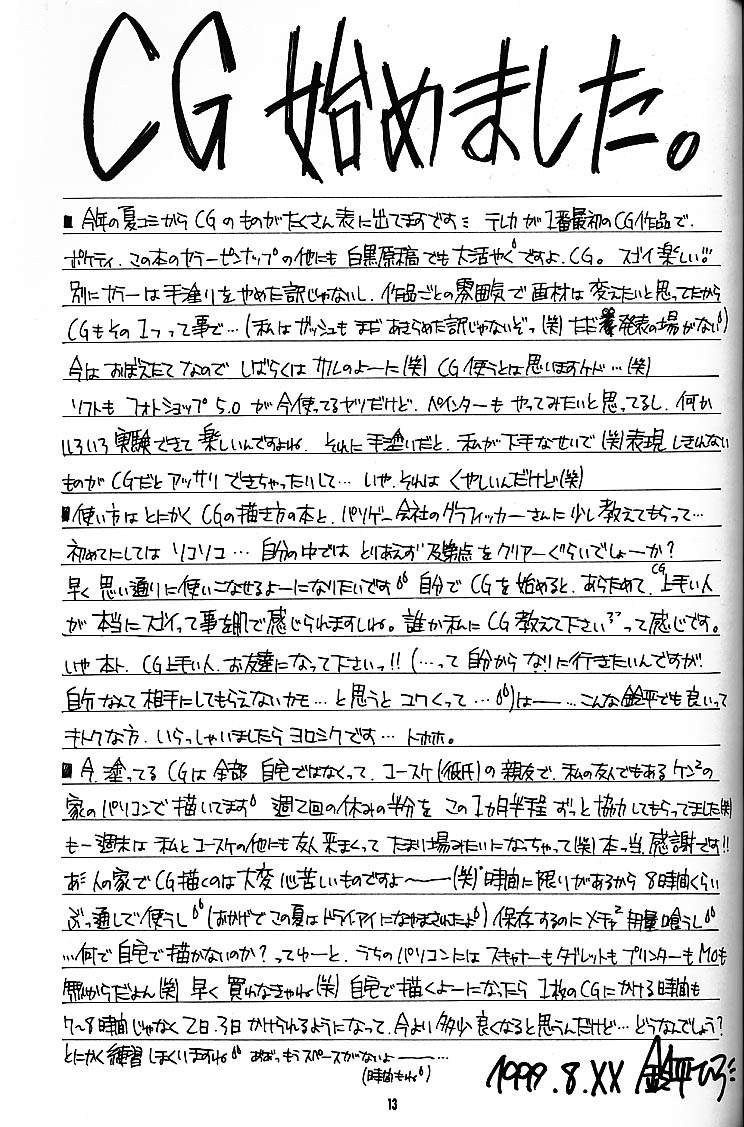 CG 始めました。
■今年の夏コミからCGのものがたくさん表に出てますです テレカが1番最初のCG作品で、
ポケティ、この本のカラーピンナップの他にも白黒原稿でも大活やくですよ、CG。スゴイ楽しい!!
別にカラーは手塗りをやめた訳じゃないし、作品ごとの雰囲気で画材は変えたいと思ってたから
CGもその1つって事で…(私はガッシュもまだあきらめた訳じゃないぞっ(笑)ただ発表の場がない)
今はおぼえたてなので しばらくはサルのよーに(笑)CG使うとは思いますケド…(笑)
ソフトもフォトショップ5.0が今使ってるヤツだけど、ペインターもやってみたいと思ってるし、何か
いろいろ実験できて楽しいんですよね。それに手塗りだと、私が下手なせいで(笑)表現しきれない
ものがCGだとアッサリできちゃったりして…いや、それはくやしいんだけど(笑)
■使い方はとにかくCGの描き方の本と、パソゲー会社のグラフィッカーさんに少し教えてもらって…
初めてにしてはソコソコ…自分の中ではとりあえず及第点をクリアーぐらいでしょーか?
早く思い通りに使いこなせるよーになりたいです 自分でCGを始めると、あらためて、CG上手い人
が本当にスゴイって事を肌で感じられますしね。誰か私にCG教えて下さいって感じです。
いや本ト、CG上手い人、お友達になって下さいっ!!(…って自分からなりに行きたいんですが、
自分なんて相手にしてもらえないカモ…と思うとコワくって…)はー…こんな鈴平でも良いって
キトクな方、いらっしゃいましたらヨロシクです…トホホ。
■今、塗ってるCGは全部自宅ではなくって、コースケ(彼氏)の親友で、私の友人でもあるケン²の
家のパソコンで描いてます 週2回の休みの半分をこの1カ月半程ずっと協力してもらってました(笑)
もー週末は私とコースケの他にも友人来まくってたまり場みたいになっちゃって(笑)本っ当、感謝です!!
あ、人の家でCG描くのは大変心苦しいものですよ〜(笑)時間に限りがあるから8時間くらい
ぶっ通しで使うし(おかげでこの夏はドライアイになやまされたよ)保存するのにメチャ²容量喰うし
…何で自宅で描かないのか?ってゆーと、うちのパソコンにはスキャナーもタブレットもプリンターもMOも
無いからだよん(笑)早く買わなきゃね(笑)自宅で描くよーになったら1枚のCGにかける時間も
7〜8時間じゃなく2日、3日かけられるようになって、今より多少良くなると思うんだけど…どうなんでしょう?
とにかく練習しまくりますね あぁっもうスペースがないよー…
(時間もね)
1999.8.XX 鈴平ひろ
13